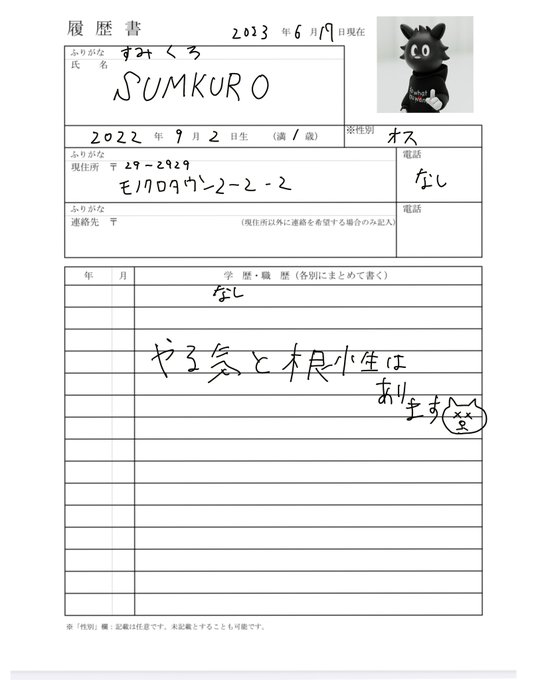 履歴書
2023 年 6 月 17 日現在
ふりがな すみくろ
氏 名
SUMKURO
2022 年 9 月 2 日生 (満 1 歳)
※性別 オス
ふりがな
現住所 〒 29-2929
モノクロタウン2-2-2
電話
なし
ふりがな
連絡先 〒 (現住所以外に連絡を希望する場合のみ記入)
電話
年 月 学 歴・職 歴(各別にまとめて書く)
なし
やる気と根性は
あります
※「性別」欄:記載は任意です。未記載とすることも可能です。